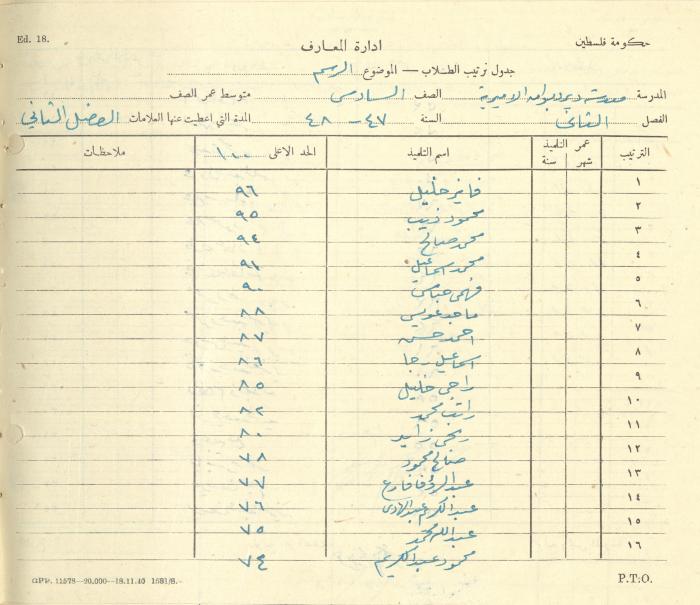 Ed. 18.
حكومة فلسطين
ادارة المعارف
جدول ترتيب الطلاب — الموضوع الرسم
المدرسة مدرسة ديردبوان الاميرية الصف السادس متوسط عمر الصف
الفصل الثاني السنة ٤٧ - ٤٨ المدة التي اعطيت عنها العلامات الفصل الثاني
الترتيب عمر التلميذ شهر سنة اسم التلميذ الحد الاعلى ١٠٠ ملاحظات
١ فايز خليل ٩٦
٢ محمود ذيب ٩٥
٣ محمد صالح ٩٤
٤ محمد اسماعيل ٩١
٥ فهمي عباس ٩٠
٦ ماجد عويس ٨٨
٧ احمد حسن ٨٧
٨ اسماعيل رجا ٨٦
٩ راجي خليل ٨٥
١٠ راتب محمد ٨٢
١١ ربحي زايد ٨٠
١٢ صالح محمود ٧٨
١٣ عبد الرؤوف فارع ٧٧
١٤ عبد الكريم عبد الهادي ٧٦
١٥ عبد الله محمد ٧٥
١٦ محمود عبد الكريم ٧٤
GPP. 11578—20.000—18.11.40 1581/S.-
P.T.O.